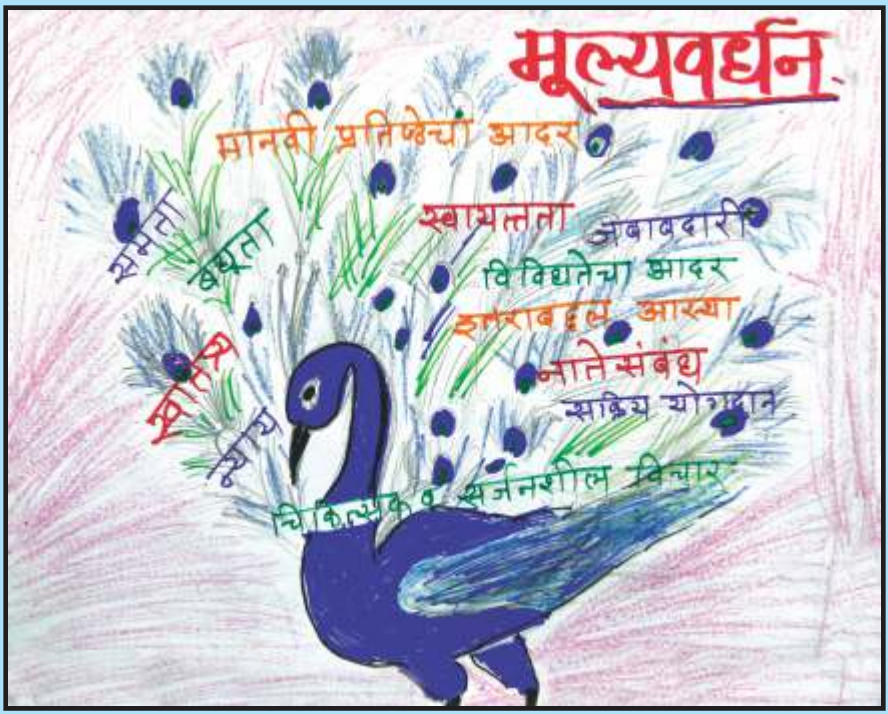 मूल्यवर्धन
मानवी प्रतिष्ठेचा आदर
समता
बंधूता
स्वायत्तता
जबाबदारी
विविधतेचा आदर
इतराबद्दल आस्था
नातेसंबंध
सक्रिय योगदान
स्वातंत्र्य
न्याय
चिकित्सक व सर्जनशील विचार